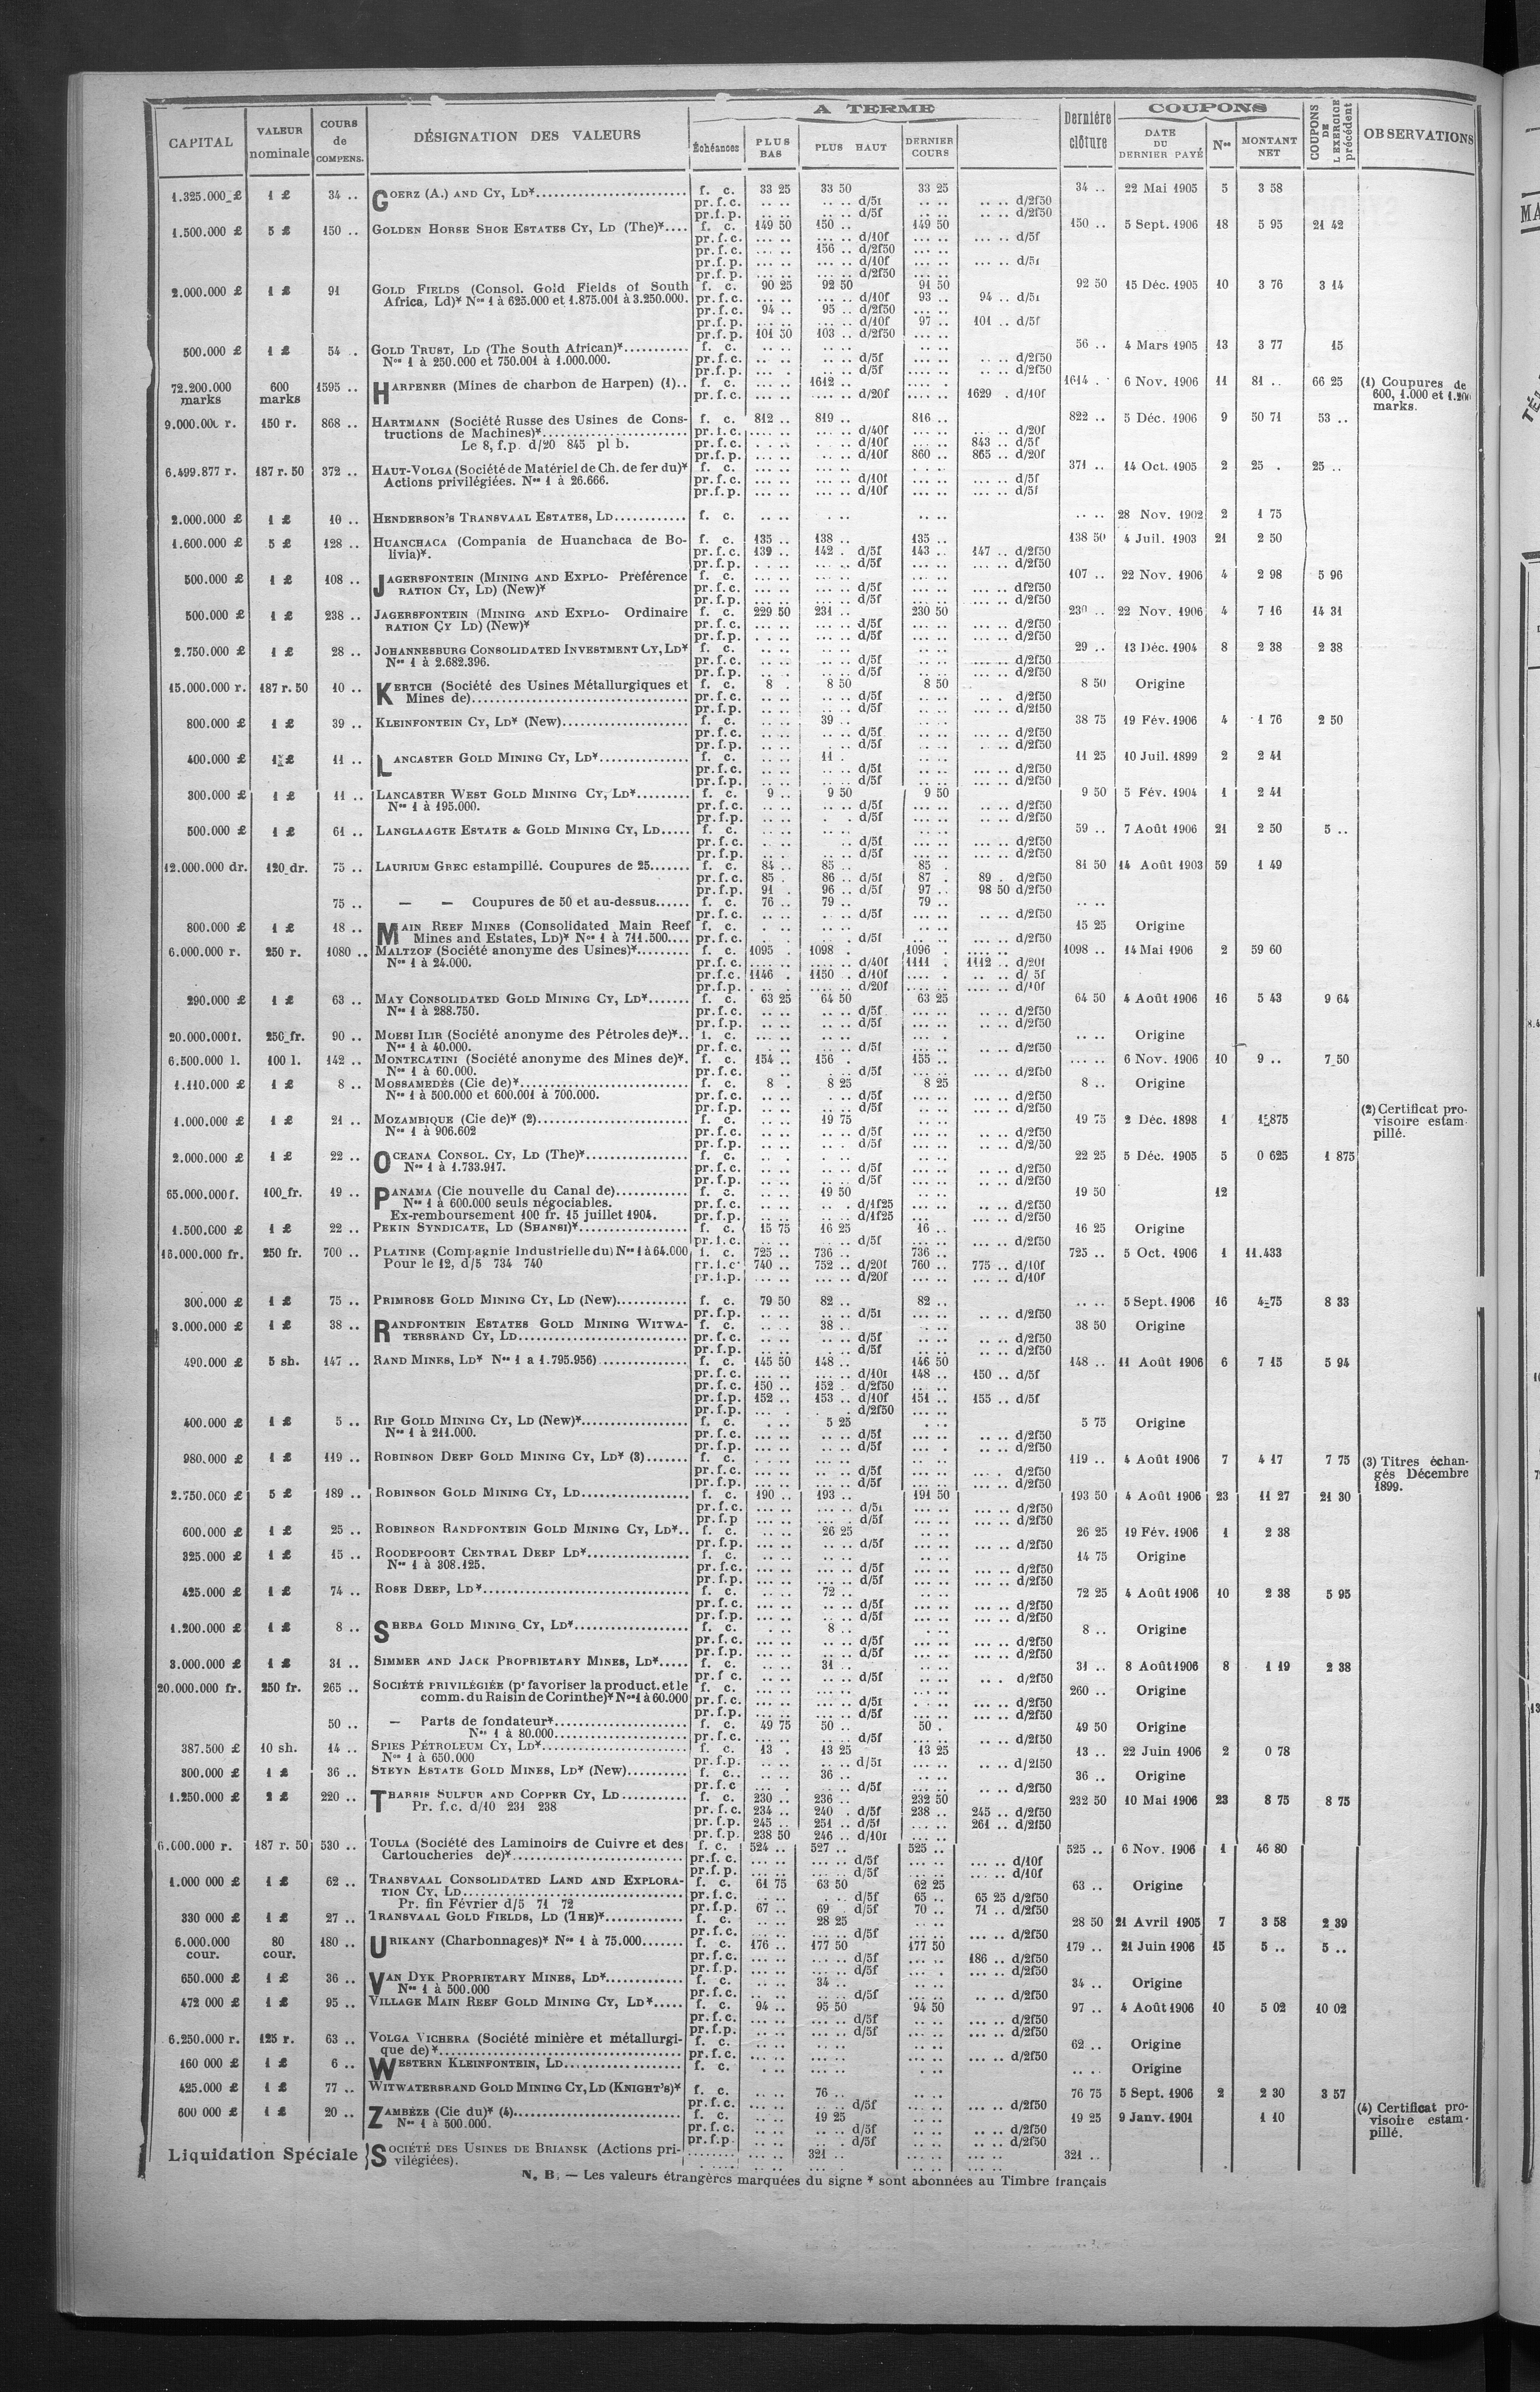 A TERME
COUPONS
CAPITAL | VALEUR nominale | COURS de COMPENS. | DÉSIGNATION DES VALEURS | Échéances | PLUS BAS | PLUS HAUT | DERNIER COURS | Dernière clôture | DATE DU DERNIER PAYÉ | Nos | MONTANT NET | COUPONS DE L'EXERCICE précédent | OBSERVATIONS
1.325.000 £ | 1 £ | 34 .. | GOERZ (A.) AND CY, LD* | f. c. | 33 25 | 33 50 | 33 25 | 34 .. | 22 Mai 1905 | 5 | 3 58
pr.f.c. | .. .. | .. .. d/5f | .. .. | .. .. d/2f50
pr.f.p. | .. .. | .. .. d/5f | .. .. | .. .. d/2f50
1.500.000 £ | 5 £ | 150 .. | GOLDEN HORSE SHOE ESTATES CY, LD (The)* | f. c. | 149 50 | 150 .. | 149 50 | 150 .. | 5 Sept. 1906 | 18 | 5 95 | 21 42
pr.f.c. | ... .. | ... .. d/10f | ... .. | ... .. d/5f
pr.f.c. | ... .. | 156 .. d/2f50
pr.f.p. | ... .. | ... .. d/10f | ... .. | ... .. d/5f
pr.f.p. | ... .. | ... .. d/2f50
2.000.000 £ | 1 £ | 91 | GOLD FIELDS (Consol. Gold Fields of South | f. c. | 90 25 | 92 50 | 91 50 | 92 50 | 15 Déc. 1905 | 10 | 3 76 | 3 14
Africa, Ld)* Nos 1 à 625.000 et 1.875.001 à 3.250.000. | pr.f.c. | ... .. | ... .. d/10f | 93 .. | 94 .. d/5f
pr.f.c. | 94 .. | 95 .. d/2f50 | ... ..
pr.f.p. | ... .. | ... .. d/10f | 97 .. | 101 .. d/5f
pr.f.p. | 101 50 | 103 .. d/2f50 | ... ..
500.000 £ | 1 £ | 54 .. | GOLD TRUST, LD (The South African)* | f. c. | 56 .. | 4 Mars 1905 | 13 | 3 77 | 15
Nos 1 à 250.000 et 750.001 à 1.000.000. | pr.f.c. | .. .. | .. .. d/5f | ... .. | .. .. d/2f50
pr.f.p. | ... .. | .. .. d/5f | .. .. | .. .. d/2f50
72.200.000 marks | 600 marks | 1595 .. | HARPENER (Mines de charbon de Harpen) (1) | f. c. | .... .. | 1612 .. | 1614 .. | 6 Nov. 1906 | 11 | 81 .. | 66 25 | (1) Coupures de
pr.f.c. | .... .. | .... .. d/20f | .... .. | 1629 . d/10f | 600, 1.000 et 1.200
marks.
9.000.000 r. | 150 r. | 868 .. | HARTMANN (Société Russe des Usines de Cons- | f. c. | 812 .. | 819 .. | 816 .. | 822 .. | 5 Déc. 1906 | 9 | 50 71 | 53 ..
tructions de Machines)* | pr.f.c. | ... .. | ... .. d/40f | ... .. | ... .. d/20f
Le 8, f.p. d/20 845 pl b. | pr.f.c. | ... .. | ... .. d/10f | ... .. | 843 .. d/5f
pr.f.p. | ... .. | ... .. d/10f | 860 .. | 865 .. d/20f
6.499.877 r. | 187 r. 50 | 372 .. | HAUT-VOLGA (Société de Matériel de Ch. de fer du)* | f. c. | 371 .. | 14 Oct. 1905 | 2 | 25 . | 25 ..
Actions privilégiées. Nos 1 à 26.666. | pr.f.c. | ... .. | ... .. d/10f | ... .. | ... .. d/5f
pr.f.p. | ... .. | ... .. d/10f | ... .. | ... .. d/5f
2.000.000 £ | 1 £ | 10 .. | HENDERSON'S TRANSVAAL ESTATES, LD | f. c. | .. .. | .. .. | .. .. | .. .. | 28 Nov. 1902 | 2 | 1 75
1.600.000 £ | 5 £ | 128 .. | HUANCHACA (Compania de Huanchaca de Bo- | f. c. | 135 .. | 138 .. | 135 .. | 138 50 | 4 Juil. 1903 | 21 | 2 50
livia)*. | pr.f.c. | 139 .. | 142 . d/5f | 143 .. | 147 .. d/2f50
pr.f.p. | ... .. | ... .. d/5f | ... .. | ... .. d/2f50
500.000 £ | 1 £ | 108 .. | JAGERSFONTEIN (MINING AND EXPLO- Préférence | f. c. | 107 .. | 22 Nov. 1906 | 4 | 2 98 | 5 96
RATION CY, LD) (New)* | pr.f.c. | ... .. | ... .. d/5f | ... .. | ... .. df2f50
pr.f.p. | ... .. | ... .. d/5f | ... .. | ... .. d/2f50
500.000 £ | 1 £ | 238 .. | JAGERSFONTEIN (MINING AND EXPLO- Ordinaire | f. c. | 229 50 | 231 .. | 230 50 | 230 .. | 22 Nov. 1906 | 4 | 7 16 | 14 31
RATION CY LD) (New)* | pr.f.c. | ... .. | ... .. d/5f | ... .. | ... .. d/2f50
pr.f.p. | ... .. | ... .. d/5f | ... .. | ... .. d/2f50
2.750.000 £ | 1 £ | 28 .. | JOHANNESBURG CONSOLIDATED INVESTMENT CY, LD* | f. c. | 29 .. | 13 Déc. 1904 | 8 | 2 38 | 2 38
Nos 1 à 2.682.396. | pr.f.c. | .. .. | .. .. d/5f | .. .. | .. .. d/2f50
pr.f.p. | .. .. | .. .. d/5f | .. .. | ... .. d/2f50
15.000.000 r. | 187 r. 50 | 10 .. | KERTCH (Société des Usines Métallurgiques et | f. c. | 8 . | 8 50 | 8 50 | 8 50 | Origine
Mines de) | pr.f.c. | .. .. | .. .. d/5f | .. .. | .. . d/2f50
pr.f.p. | .. .. | .. .. d/5f | .. .. | .. .. d/2f50
800.000 £ | 1 £ | 39 .. | KLEINFONTEIN CY, LD* (New) | f. c. | .. .. | 39 .. | 38 75 | 19 Fév. 1906 | 4 | 1 76 | 2 50
pr.f.c. | .. .. | .. .. d/5f | .. .. | .. .. d/2f50
pr.f.p. | .. .. | .. .. d/5f | .. .. | .. .. d/2f50
400.000 £ | 1 £ | 11 .. | LANCASTER GOLD MINING CY, LD* | f. c. | .. .. | 11 . | 11 25 | 10 Juil. 1899 | 2 | 2 41
pr.f.c. | .. .. | .. .. d/5f | ... .. | ... .. d/2f50
pr.f.p. | .. .. | .. .. d/5f | ... .. | ... .. d/2f50
300.000 £ | 1 £ | 11 .. | LANCASTER WEST GOLD MINING CY, LD* | f. c. | 9 .. | 9 50 | 9 50 | 9 50 | 5 Fév. 1904 | 1 | 2 41
Nos 1 à 195.000. | pr.f.c. | .. .. | .. .. d/5f | ... .. | .. .. d/2f50
pr.f.p. | .. .. | . . d/5f | ... .. | .. .. d/2f50
500.000 £ | 1 £ | 61 .. | LANGLAAGTE ESTATE & GOLD MINING CY, LD | f. c. | 59 .. | 7 Août 1906 | 21 | 2 50 | 5 ..
pr.f.c. | .. .. | .. .. d/5f | ... .. | .. .. d/2f50
pr.f.p. | .. .. | .. .. d/5f | ... .. | .. .. d/2f50
12.000.000 dr. | 120 dr. | 75 .. | LAURIUM GREC estampillé. Coupures de 25 | f. c. | 84 .. | 85 .. | 85 .. | 81 50 | 14 Août 1903 | 59 | 1 49
pr.f.c. | 85 . | 86 .. d/5f | 87 . | 89 . d/2f50
pr.f.p. | 91 . | 96 .. d/5f | 97 .. | 98 50 d/2f50
75 .. | — — Coupures de 50 et au-dessus | f. c. | 76 .. | 79 .. | 79 .. | .. ..
pr.f.c. | .. .. | .. .. d/5f | .. .. | .. .. d/2f50
800.000 £ | 1 £ | 18 .. | MAIN REEF MINES (Consolidated Main Reef | f. c. | 15 25 | Origine
Mines and Estates, LD)* Nos 1 à 711.500 | pr.f.c. | . . | .. . d/5f | .. .. | ... .. d/2f50
6.000.000 r. | 250 r. | 1080 .. | MALTZOF (Société anonyme des Usines)* | f. c. | 1095 . | 1098 . | 1096 . | 1098 .. | 14 Mai 1906 | 2 | 59 60
Nos 1 à 24.000. | pr.f.c. | .... .. | .... .. d/40f | 1111 . | 1112 .. d/20f
pr.f.c. | 1146 . | 1150 .. d/10f | .... . | .. .. d/ 5f
pr.f.p. | .... .. | .... .. d/20f | .... .. | .... .. d/10f
290.000 £ | 1 £ | 63 .. | MAY CONSOLIDATED GOLD MINING CY, LD* | f. c. | 63 25 | 64 50 | 63 25 | 64 50 | 4 Août 1906 | 16 | 5 43 | 9 64
Nos 1 à 288.750. | pr.f.c. | .. .. | .. .. d/5f | .. .. | .. .. d/2f50
pr.f.p. | .. .. | .. .. d/5f | .. .. | .. .. d/2f50
20.000.000 f. | 250 fr. | 90 .. | MOESI ILIR (Société anonyme des Pétroles de)* | f. c. | .. .. | Origine
Nos 1 à 40.000. | pr.f.c. | .. .. | .. .. d/5f | .. .. | .. .. d/2f50
6.500.000 l. | 100 l. | 142 .. | MONTECATINI (Société anonyme des Mines de)*. | f. c. | 154 .. | 156 . | 155 .. | ... .. | 6 Nov. 1906 | 10 | 9 .. | 7 50
Nos 1 à 60.000. | pr.f.c. | .. .. | .. . d/5f | ... .. | ... .. d/2f50
1.110.000 £ | 1 £ | 8 .. | MOSSAMEDÈS (Cie de)* | f. c. | 8 . | 8 25 | 8 25 | 8 .. | Origine
Nos 1 à 500.000 et 600.001 à 700.000. | pr.f.c. | .. .. | .. . d/5f | .. .. | .. .. d/2f50
pr.f.p. | .. .. | .. .. d/5f | .. .. | .. .. d/2f50
1.000.000 £ | 1 £ | 21 .. | MOZAMBIQUE (Cie de)* (2) | f. c. | .. .. | 19 75 | 19 75 | 2 Déc. 1898 | 1 | 1 875 | (2) Certificat pro-
Nos 1 à 906.602 | pr.f.c. | .. .. | .. .. d/5f | .. .. | .. .. d/2f50 | visoire estam-
pr.f.p. | .. .. | .. .. d/5f | .. .. | .. .. d/2/50 | pillé.
2.000.000 £ | 1 £ | 22 .. | OCEANA CONSOL. CY, LD (The)* | f. c. | 22 25 | 5 Déc. 1905 | 5 | 0 625 | 1 875
Nos 1 à 1.733.917. | pr.f.c. | .. .. | .. .. d/5f | .. .. | .. .. d/2f50
pr.f.p. | .. .. | .. .. d/5f | .. .. | .. .. d/2f50
65.000.000 f. | 100 fr. | 19 .. | PANAMA (Cie nouvelle du Canal de) | f. c. | .. .. | 19 50 | 19 50 | 12
Nos 1 à 600.000 seuls négociables. | pr.f.c. | .. .. | .. . d/1f25 | ... .. | .. .. d/2f50
Ex-remboursement 100 fr. 15 juillet 1904. | pr.f.p. | .. .. | .. .. d/1f25 | ... | .. .. d/2f50
1.500.000 £ | 1 £ | 22 .. | PEKIN SYNDICATE, LD (SHANSI)* | f. c. | 15 75 | 16 25 | 16 .. | 16 25 | Origine
pr.f.c. | .. .. | .. .. d/5f | .. .. | .. .. d/2f50
16.000.000 fr. | 250 fr. | 700 .. | PLATINE (Compagnie Industrielle du) Nos 1 à 64.000 | f. c. | 725 .. | 736 .. | 736 .. | 725 .. | 5 Oct. 1906 | 1 | 11.433
Pour le 12, d/5 734 740 | pr.f.c. | 740 .. | 752 .. d/20f | 760 .. | 775 .. d/10f
pr.f.p. | ... .. | ... .. d/20f | ... .. | ... .. d/10f
300.000 £ | 1 £ | 75 .. | PRIMROSE GOLD MINING CY, LD (New) | f. c. | 79 50 | 82 .. | 82 .. | .. .. | 5 Sept. 1906 | 16 | 4 75 | 8 33
pr.f.p. | ... .. | ... .. d/5f | .. .. | .. .. d/2f50
3.000.000 £ | 1 £ | 38 .. | RANDFONTEIN ESTATES GOLD MINING WITWA- | f. c. | .. .. | 38 .. | 38 50 | Origine
TERSRAND CY, LD | pr.f.c. | .. .. | .. .. d/5f | .. .. | .. .. d/2f50
pr.f.p. | .. .. | .. .. d/5f | .. .. | .. .. d/2f50
490.000 £ | 5 sh. | 147 .. | RAND MINES, LD* Nos 1 a 1.795.956) | f. c. | 145 50 | 148 .. | 146 50 | 148 .. | 11 Août 1906 | 6 | 7 15 | 5 94
pr.f.c. | ... .. | ... .. d/10f | 148 .. | 150 .. d/5f
pr.f.c. | 150 .. | 152 . d/2f50 | .. ..
pr.f.p. | 152 .. | 153 .. d/10f | 151 .. | 155 .. d/5f
pr.f.p. | ... . | . . d/2f50 | ... ..
400.000 £ | 1 £ | 5 .. | RIP GOLD MINING CY, LD (New)* | f. c. | . .. | 5 25 | 5 75 | Origine
Nos 1 à 211.000. | pr.f.c. | ... .. | ... .. d/5f | ... .. | .. .. d/2f50
pr.f.p. | ... .. | ... .. d/5f | ... . | .. .. d/2f50
980.000 £ | 1 £ | 119 .. | ROBINSON DEEP GOLD MINING CY, LD* (3) | f. c. | 119 .. | 4 Août 1906 | 7 | 4 17 | 7 75 | (3) Titres échan-
pr.f.c. | ... .. | .. .. d/5f | ... .. | ... . d/2f50 | gés Décembre
pr.f.p. | ... .. | ... .. d/5f | ... .. | ... .. d/2f50 | 1899.
2.750.000 £ | 5 £ | 189 .. | ROBINSON GOLD MINING CY, LD | f. c. | 190 .. | 193 .. | 191 50 | 193 50 | 4 Août 1906 | 23 | 11 27 | 21 30
pr.f.c. | ... .. | ... .. d/5f | ... .. | ... .. d/2f50
pr.f.p | ... .. | ... . d/5f | ... .. | ... .. d/2f50
600.000 £ | 1 £ | 25 .. | ROBINSON RANDFONTEIN GOLD MINING CY, LD* | f. c. | ... .. | 26 25 | 26 25 | 19 Fév. 1906 | 1 | 2 38
pr.f.p. | ... .. | ... .. d/5f | ... .. | ... .. d/2f50
325.000 £ | 1 £ | 15 .. | ROODEPOORT CENTRAL DEEP LD* | f. c. | 14 75 | Origine
Nos 1 à 308.125. | pr.f.c. | ... .. | ... .. d/5f | ... .. | ... .. d/2f50
pr.f.p. | ... .. | ... .. d/5f | ... .. | ... .. d/2f50
425.000 £ | 1 £ | 74 .. | ROSE DEEP, LD* | f. c. | .. .. | 72 .. | 72 25 | 4 Août 1906 | 10 | 2 38 | 5 95
pr.f.c. | ... .. | .. .. d/5f | ... .. | ... .. d/2f50
pr.f.p. | ... .. | .. .. d/5f | ... .. | ... .. d/2f50
1.200.000 £ | 1 £ | 8 .. | SHEBA GOLD MINING CY, LD* | f. c. | .. . | 8 .. | 8 .. | Origine
pr.f.c. | ... .. | .. .. d/5f | ... .. | ... .. d/2f50
pr.f.p. | ... .. | .. .. d/5f | ... .. | ... .. d/2f50
3.000.000 £ | 1 £ | 31 .. | SIMMER AND JACK PROPRIETARY MINES, LD* | f. c. | .. .. | 31 .. | 31 .. | 8 Août 1906 | 8 | 1 19 | 2 38
pr.f.c. | ... .. | .. .. d/5f | ... .. | ... . d/2f50
20.000.000 fr. | 250 fr. | 265 .. | SOCIÉTÉ PRIVILÉGIÉE (pr favoriser la product. et le | f. c. | 260 .. | Origine
comm. du Raisin de Corinthe)* Nos 1 à 60.000 | pr.f.c. | ... .. | ... .. d/5f | ... .. | ... .. d/2f50
pr.f.p. | ... .. | ... .. d/5f | ... .. | ... .. d/2f50
50 .. | — Parts de fondateur* | f. c. | 49 75 | 50 .. | 50 . | 49 50 | Origine
Nos 1 à 80.000 | pr.f.c. | ... .. | ... .. d/5f | ... .. | ... .. d/2f50
387.500 £ | 10 sh. | 14 .. | SPIES PÉTROLEUM CY, LD* | f. c. | 13 . | 13 25 | 13 25 | 13 .. | 22 Juin 1906 | 2 | 0 78
Nos 1 à 650.000 | pr.f.p. | .. .. | .. .. d/5f | .. .. | .. .. d/2f50
300.000 £ | 1 £ | 36 .. | STEYN ESTATE GOLD MINES, LD* (New) | f. c. | .. .. | 36 .. | 36 .. | Origine
pr.f.c | ... . | ... .. d/5f | .. .. | .. .. d/2f50
1.250.000 £ | 2 £ | 220 .. | THARSIS SULFUR AND COPPER CY, LD | f. c. | 230 .. | 236 .. | 232 50 | 232 50 | 10 Mai 1906 | 23 | 8 75 | 8 75
Pr. f.c. d/10 231 238 | pr.f.c. | 234 .. | 240 . d/5f | 238 .. | 245 .. d/2f50
pr.f.p. | 245 .. | 251 .. d/5f | ... .. | 261 .. d/2f50
pr.f.p. | 238 50 | 246 .. d/10f | ... ..
6.000.000 r. | 187 r. 50 | 530 .. | TOULA (Société des Laminoirs de Cuivre et des | f. c. | 524 .. | 527 .. | 525 .. | 525 .. | 6 Nov. 1906 | 1 | 46 80
Cartoucheries de)* | pr.f.c. | ... .. | ... .. d/5f | ... .. | ... .. d/10f
pr.f.p. | ... .. | ... .. d/5f | ... .. | ... .. d/10f
1.000 000 £ | 1 £ | 62 .. | TRANSVAAL CONSOLIDATED LAND AND EXPLORA- | f. c. | 61 75 | 63 50 | 62 25 | 63 .. | Origine
TION CY, LD | pr.f.c. | .. .. | .. . d/5f | 65 .. | 65 25 d/2f50
Pr. fin Février d/5 71 72 | pr.f.p. | 67 .. | 69 . d/5f | 70 .. | 71 .. d/2f50
330 000 £ | 1 £ | 27 .. | TRANSVAAL GOLD FIELDS, LD (THE)* | f. c. | .. .. | 28 25 | 28 50 | 21 Avril 1905 | 7 | 3 58 | 2 39
pr.f.c. | ... .. | ... .. d/5f | ... .. | ... .. d/2f50
6.000.000 cour. | 80 cour. | 180 .. | URIKANY (Charbonnages)* Nos 1 à 75.000 | f. c. | 176 .. | 177 50 | 177 50 | 179 .. | 21 Juin 1906 | 15 | 5 .. | 5 ..
pr.f.c. | ... .. | ... .. d/5f | ... .. | 186 .. d/2f50
pr.f.p. | ... .. | ... .. d/5f | ... . | ... .. d/2f50
650.000 £ | 1 £ | 36 .. | VAN DYK PROPRIETARY MINES, LD* | f. c. | .. .. | 34 .. | 34 .. | Origine
Nos 1 à 500.000 | pr.f.c. | .. .. | .. .. d/5f | .. .. | .. .. d/2f50
472 000 £ | 1 £ | 95 .. | VILLAGE MAIN REEF GOLD MINING CY, LD* | f. c. | 94 .. | 95 50 | 94 50 | 97 .. | 4 Août 1906 | 10 | 5 02 | 10 02
pr.f.c. | ... .. | ... .. d/5f | ... .. | ... .. d/2f50
pr.f.p. | .. .. | ... .. d/5f | ... .. | ... .. d/2f50
6.250.000 r. | 125 r. | 63 .. | VOLGA VICHERA (Société minière et métallurgi- | f. c. | 62 .. | Origine
que de)* | pr.f.c. | ... .. | ... .. | ... .. | ... .. d/2f50
160 000 £ | 1 £ | 6 .. | WESTERN KLEINFONTEIN, LD | f. c. | ... .. | ... .. | ... .. | .. . | Origine
425.000 £ | 1 £ | 77 .. | WITWATERSRAND GOLD MINING CY, LD (KNIGHT'S)* | f. c. | .. .. | 76 .. | 76 75 | 5 Sept. 1906 | 2 | 2 30 | 3 57
pr.f.c. | ... .. | .. .. d/5f | ... .. | ... .. d/2f50
600 000 £ | 1 £ | 20 .. | ZAMBÈZE (Cie du)* (4) | f. c. | .. .. | 19 25 | 19 25 | 9 Janv. 1901 | 1 10 | (4) Certificat pro-
Nos 1 à 500.000. | pr.f.c. | .. .. | .. .. d/5f | .. .. | .. .. d/2f50 | visoire estam-
pr.f.p. | .. .. | .. . d/5f | .. .. | .. .. d/2f50 | pillé.
Liquidation Spéciale } SOCIÉTÉ DES USINES DE BRIANSK (Actions pri- | ... .. | 321 .. | ... .. | 321 ..
vilégiées).
N. B. — Les valeurs étrangères marquées du signe * sont abonnées au Timbre français